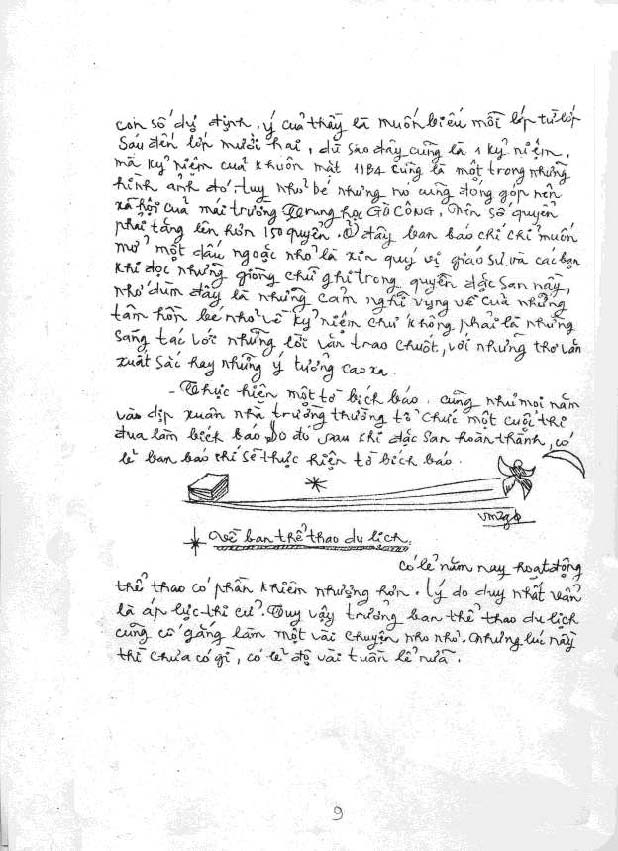 con số dự định. ý của thầy là muốn biếu mỗi lớp từ lớp
Sáu đến lớp mười hai, dù sao đây cũng là 1 kỷ niệm,
mà kỷ niệm của khuôn mặt 11B4 cũng là một trong những
hình ảnh đó tuy nhỏ bé nhưng nó cũng đóng góp nên
xã hội của mái trường Trung học GÒ CÔNG, nên số quyển
phải tăng lên hơn 150 quyển. Ở đây ban báo chí chỉ muốn
mở một dấu ngoặc nhỏ là xin quý vị giáo sư và các bạn
khi đọc những giòng chữ ghi trong quyển đặc San này,
nhớ dùm đây là những cảm nghĩ vụng về của những
tâm hồn bé nhỏ về kỷ niệm chứ không phải là những
sáng tác với những lời văn trao chuốt, với những thơ văn
xuất sắc hay những ý tưởng cao xa.
- Thực hiện một tờ bích báo. cũng như mọi năm
vào dịp xuân nhà trường thường tổ chức một cuộc thi
đua làm bích báo Do đó sau khi đặc San hoàn thành, có
lẽ ban báo chí sẽ thực hiện tờ bích báo.
* Về ban thể thao du lịch:
Có lẽ năm nay hoạt động
thể thao có phần khiêm nhượng hơn. lý do duy nhất vẫn
là áp lực thi cử. Tuy vậy trưởng ban thể thao du lịch
cũng cố gắng làm một vài chuyện nho nhỏ. nhưng lúc này
thì chưa có gì, có lẽ độ vài tuần lễ nữa.
9